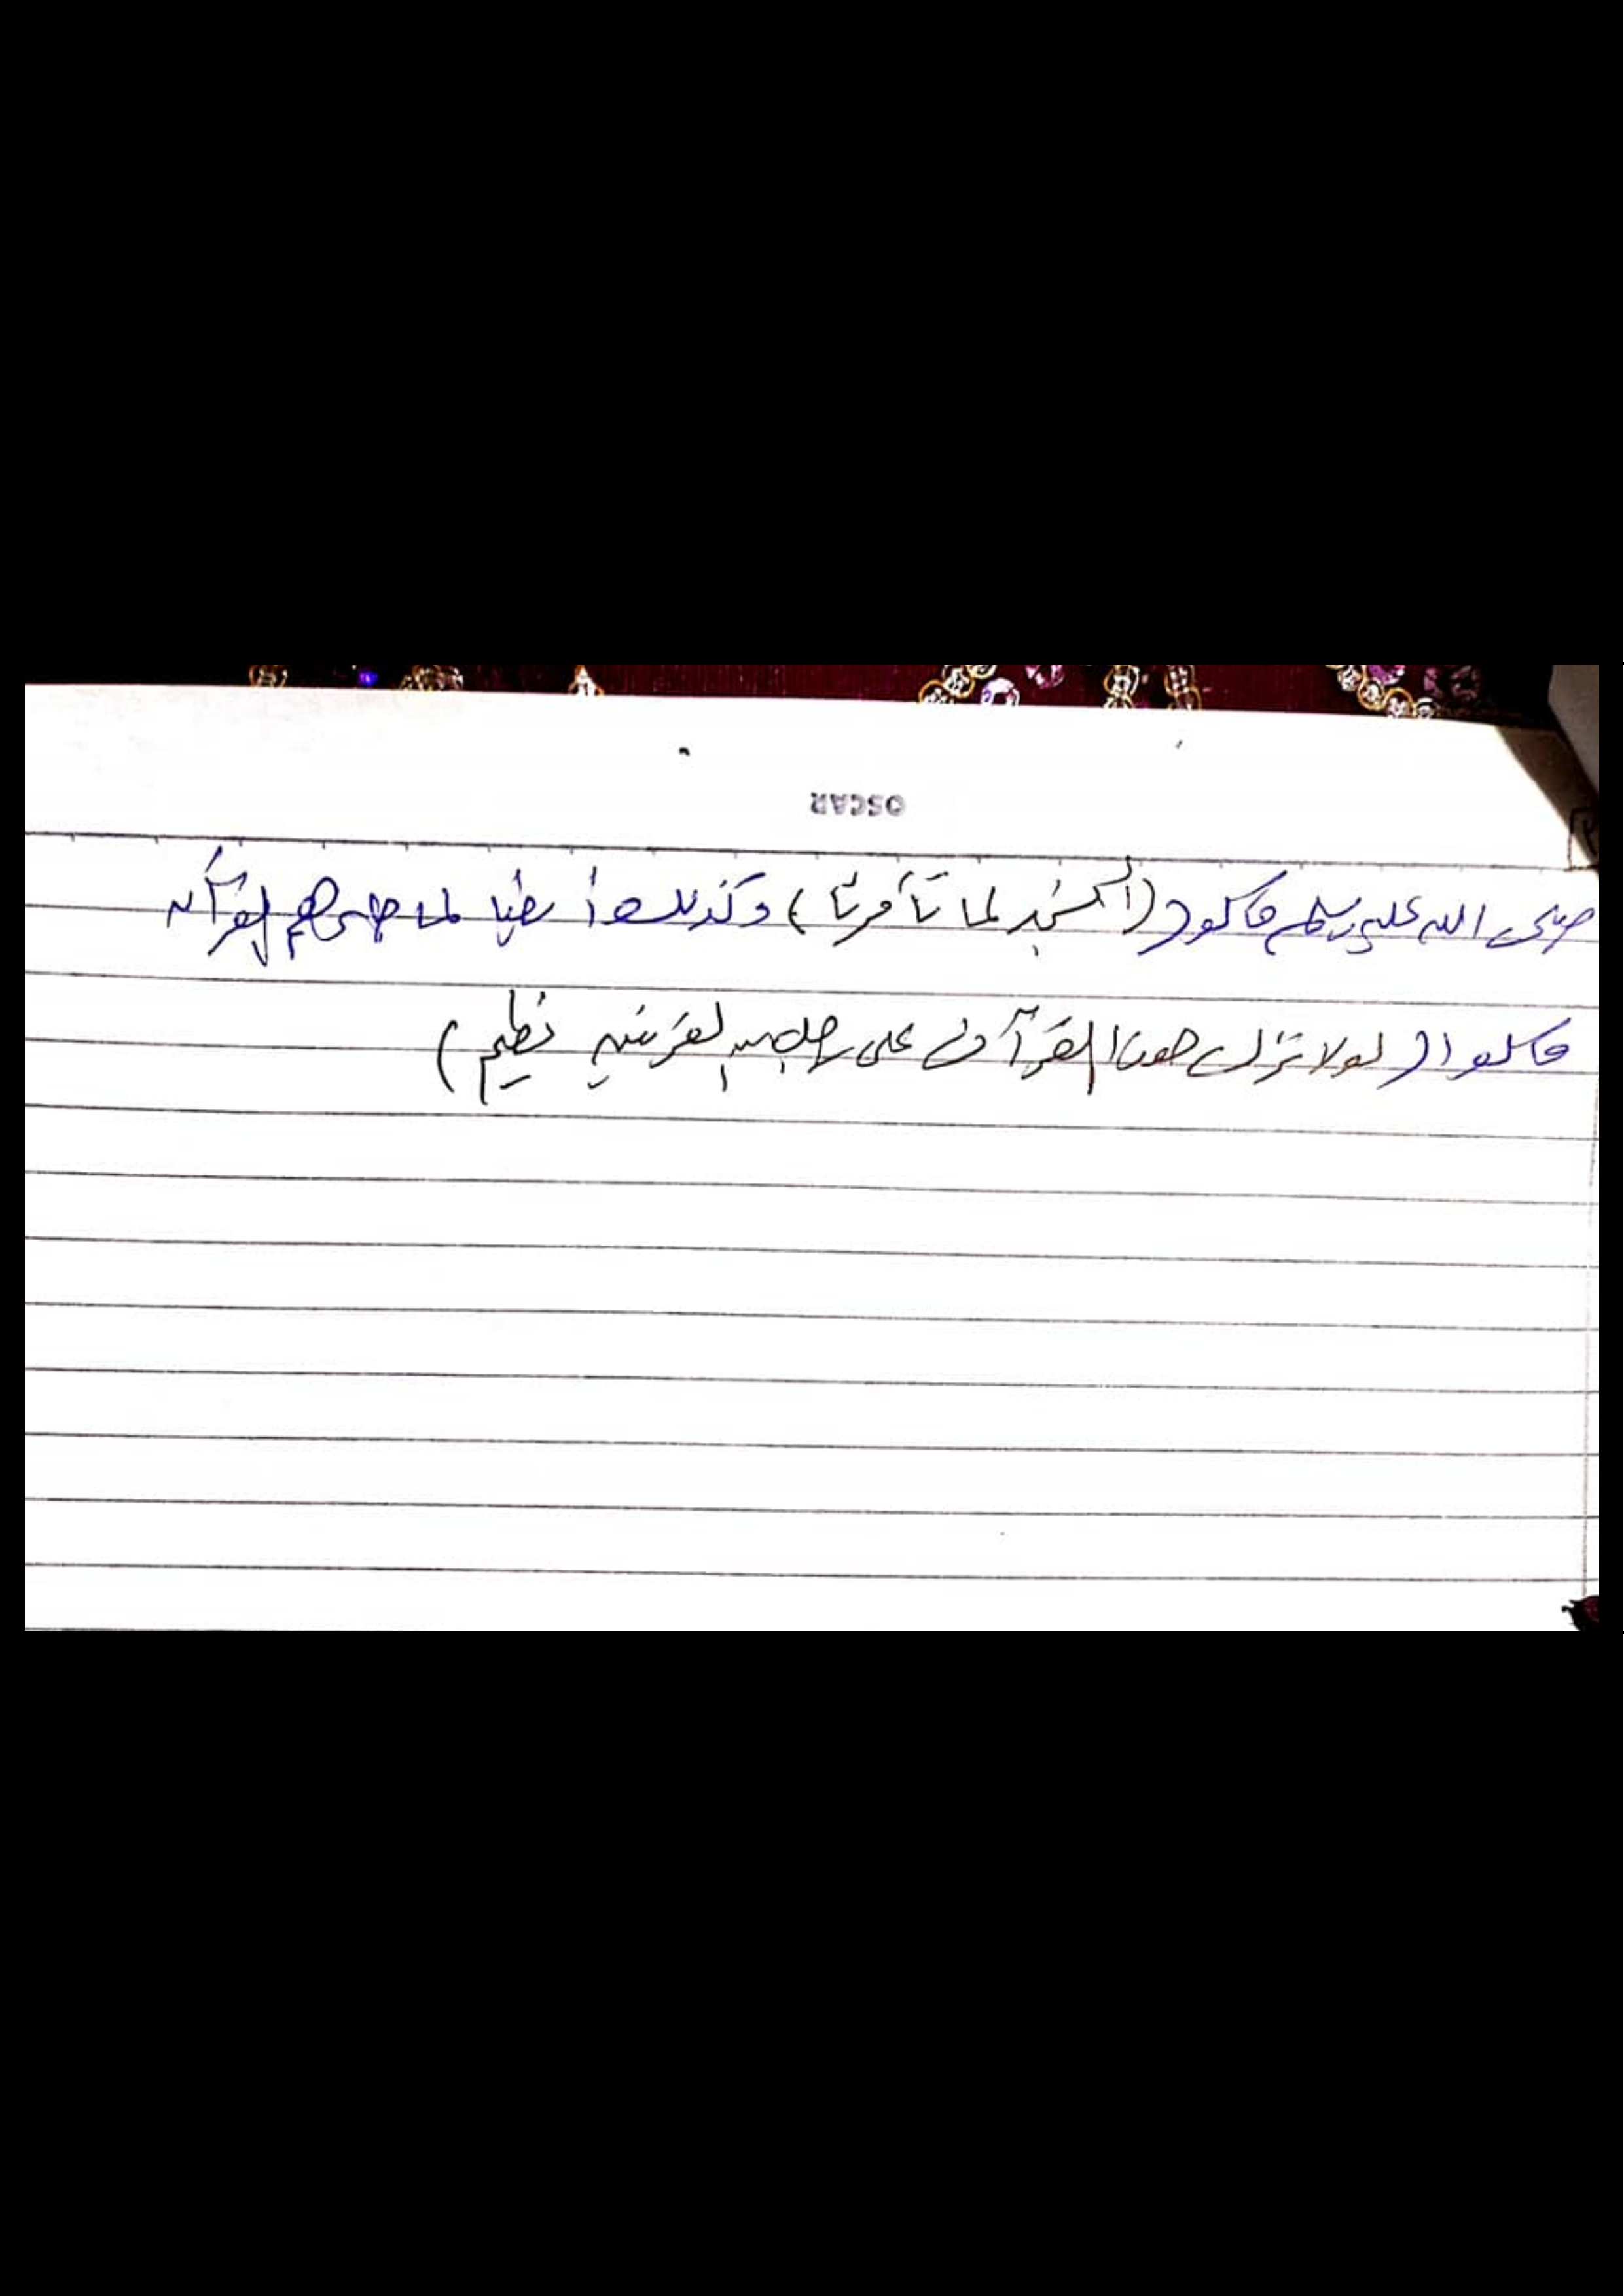 OSCAR
صلى الله عليه وسلم قالوا ( أنسجد لما تأمرنا ) وكذلك أيضا لما جاءهم القرآن
قالوا ( لولا نزل هذا القرآن على رجل من القريتين عظيم )